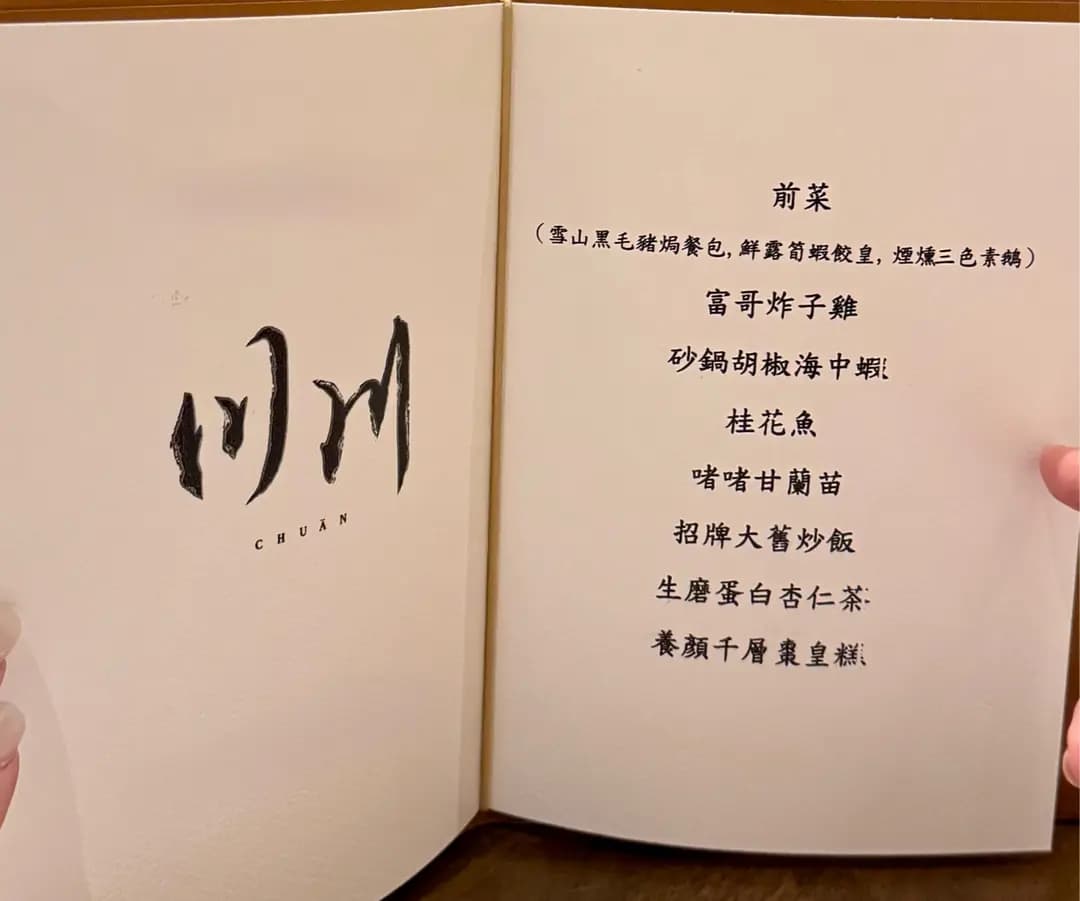 CHUĀN
前菜
（雪山黑毛豬焗餐包, 鮮露筍蝦餃皇, 煙燻三色素鵝）
富哥炸子雞
砂鍋胡椒海中蝦
桂花魚
啫啫甘蘭苗
招牌大舊炒飯
生磨蛋白杏仁茶
養顏千層棗皇糕